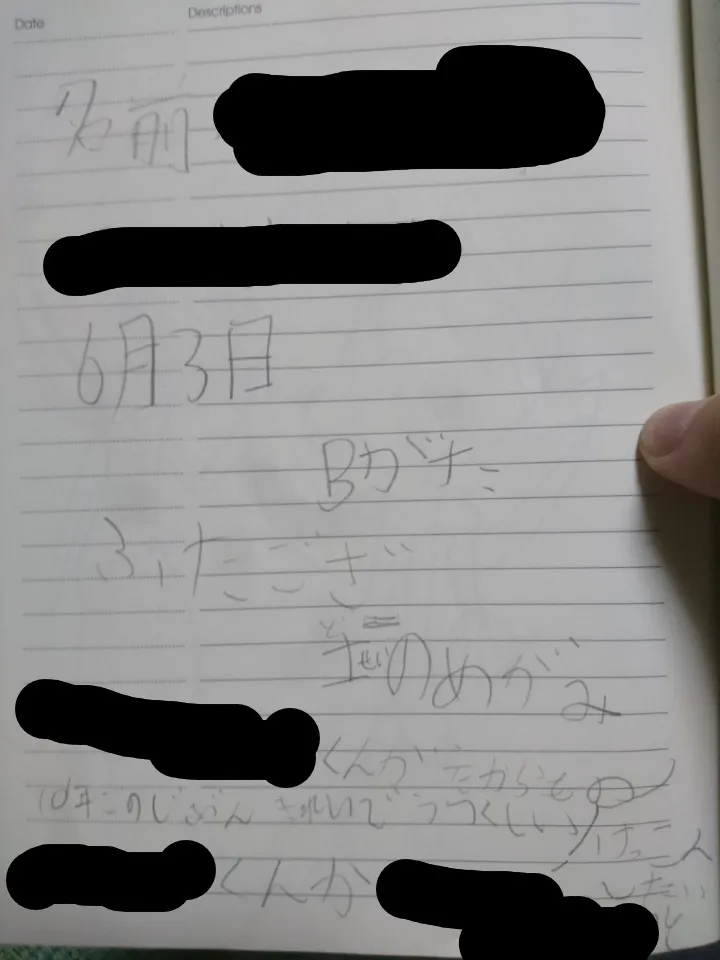 Date Descriptions
名前
6月3日
Bがた
ふたござ
土のめがみ
くんがたからもの
はまこのじぶん きれいでうつくしい
けっこん
くんか したい
と